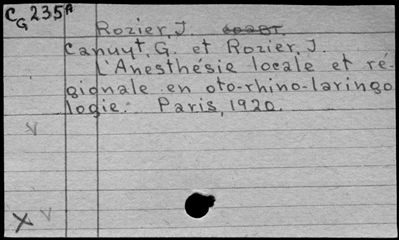 CG 235A
Rozier, J.
Canuyt, G. et Rozier, J.
L'Anesthésie locale et ré-
gionale en oto-rhino-laringo
logie. Paris, 1920.